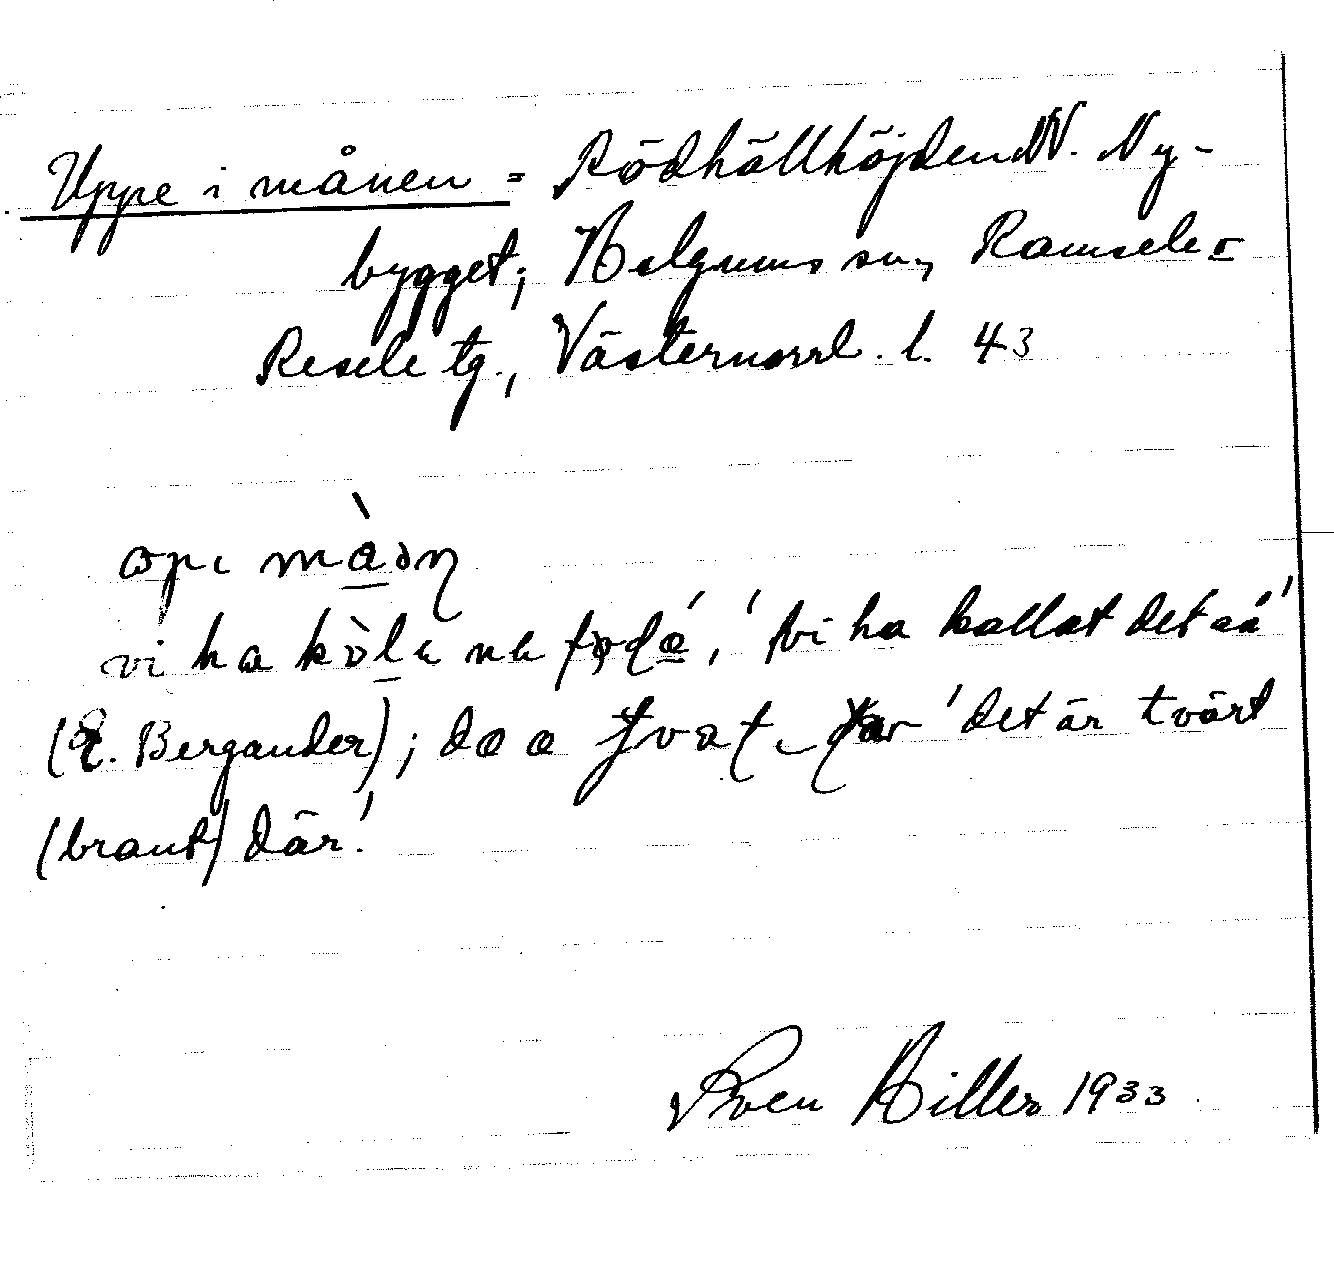 Uppe i månen = Rödhällhöjden N. Ny-
bygget; Helgums sn, Ramsele-
Resele tg., Västernorrl. l. 43
vi ha 'vi ha kallat det så'
(E. Bergander); 'det är tvärt
(brant) där.'
Sven Hiller 1933